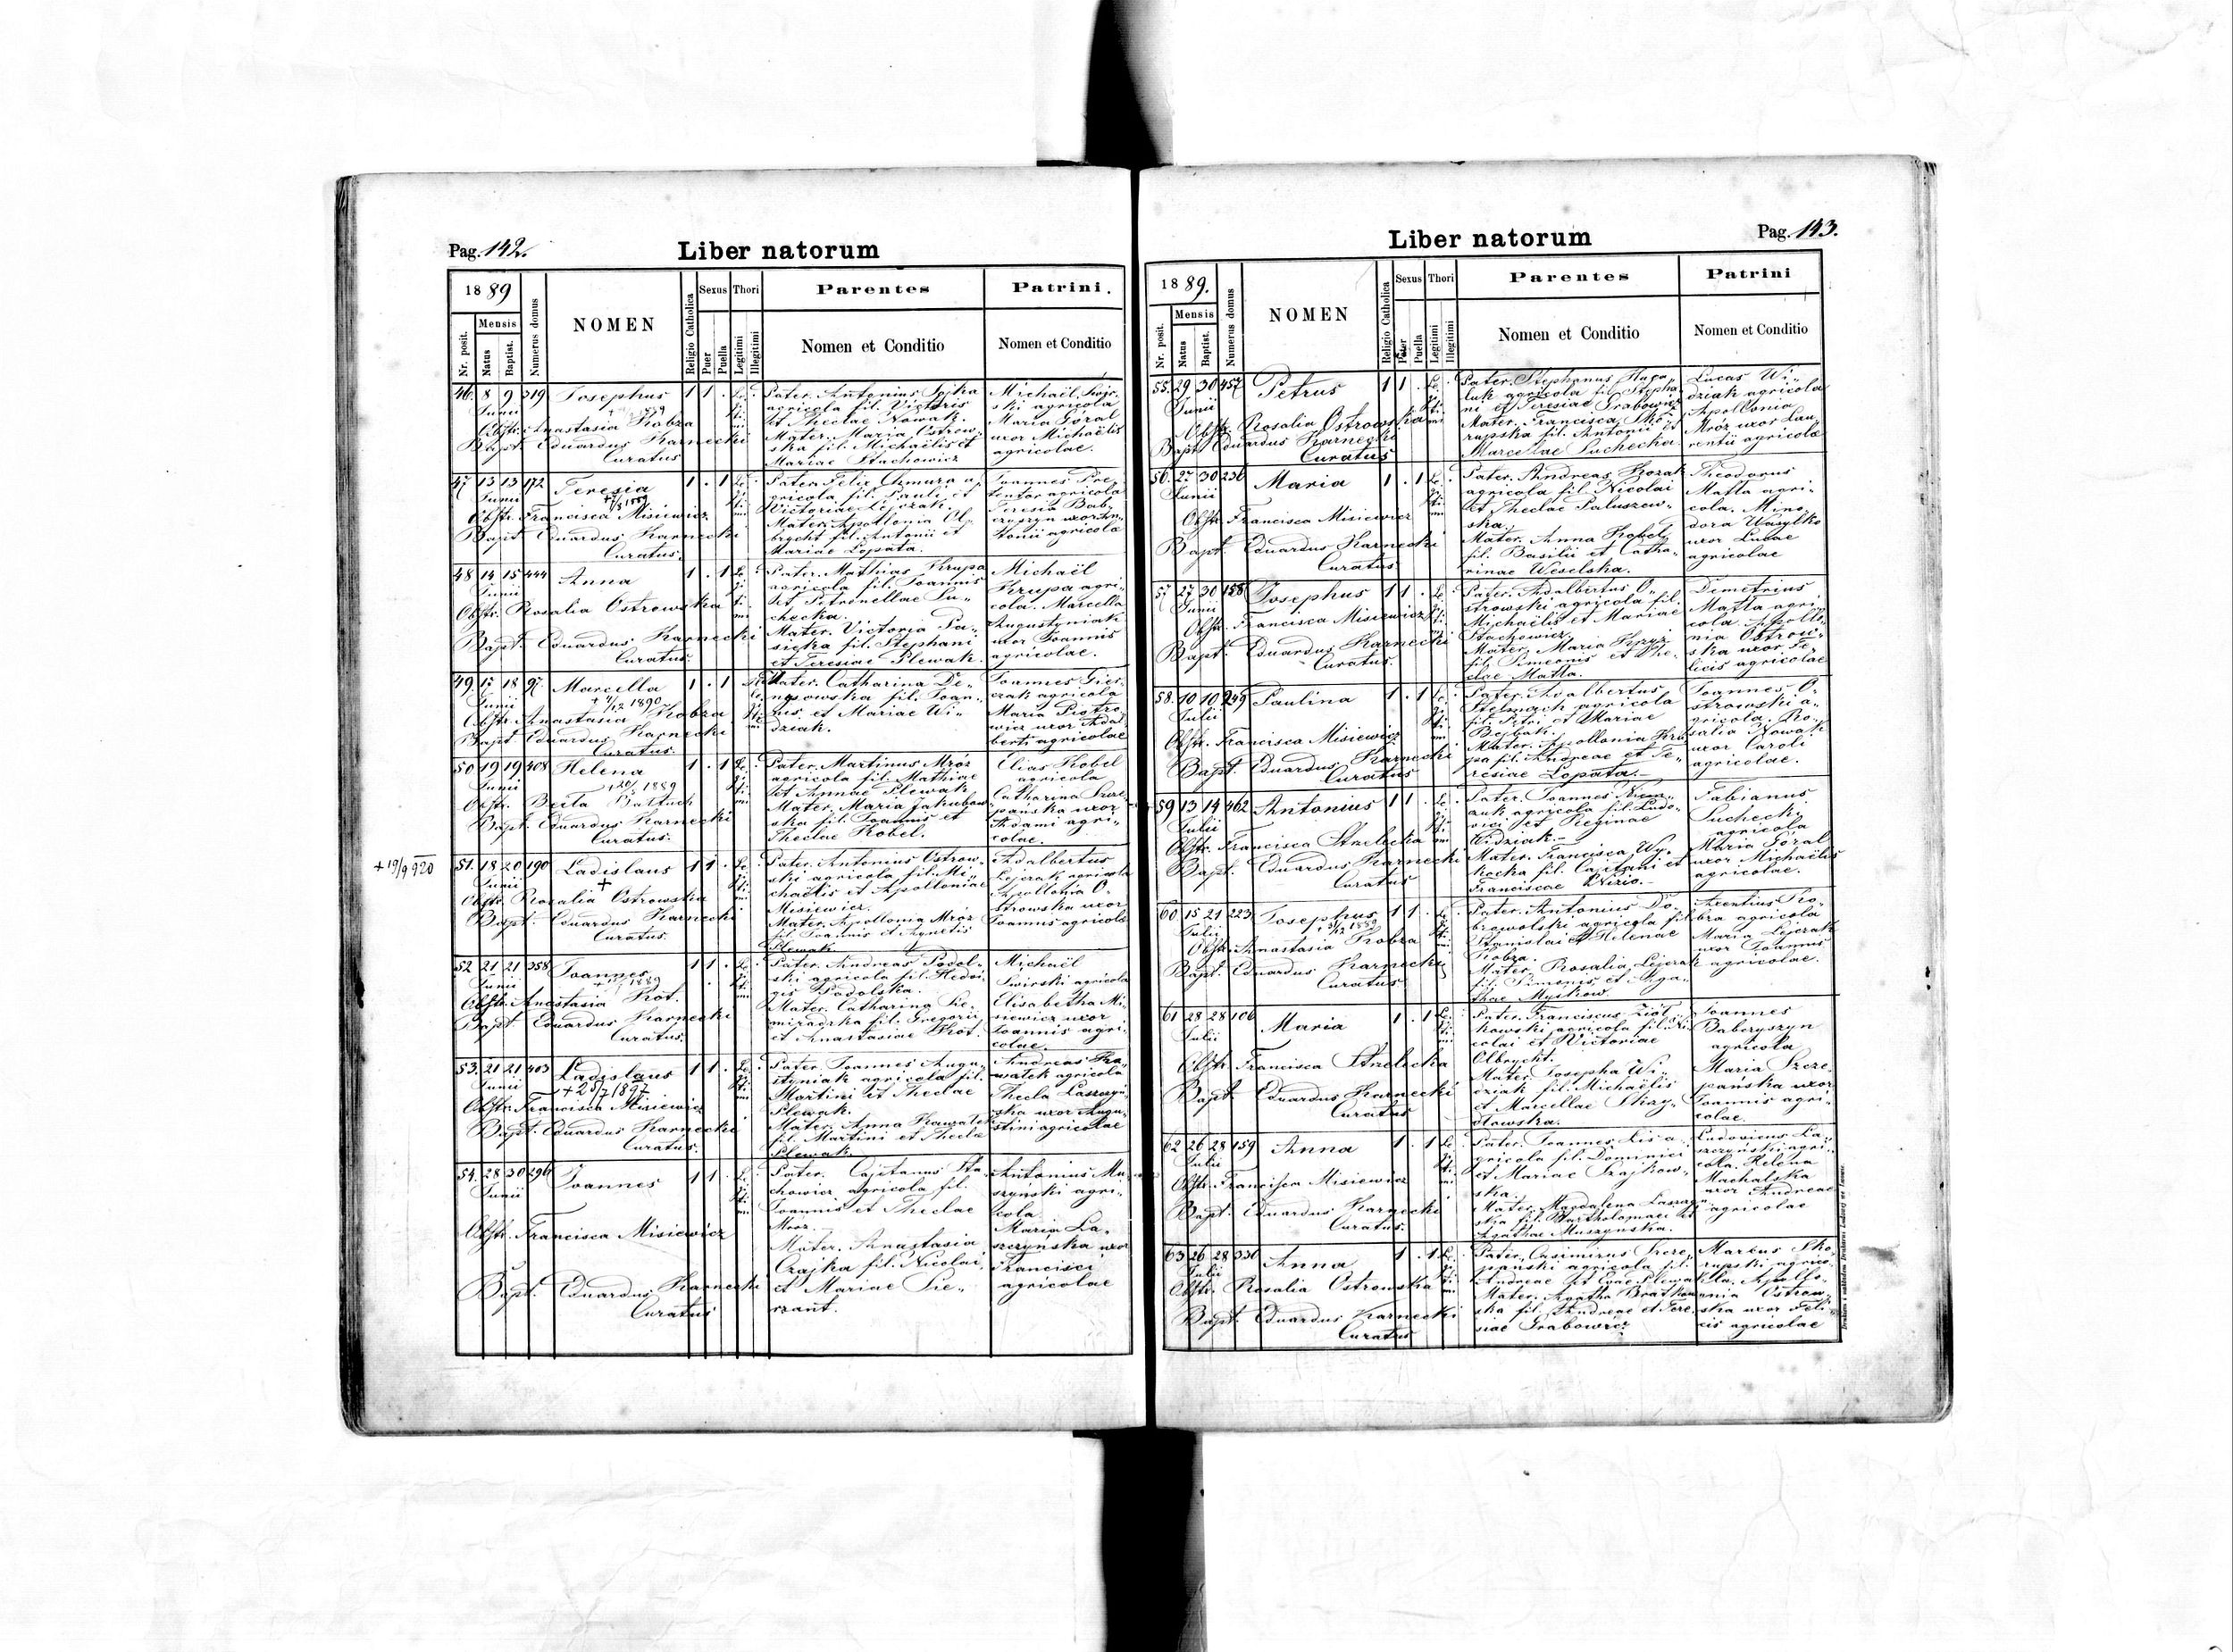 Pag. 142.
Liber natorum
1889
Mensis
Nr. posit.
Natus
Baptist.
Numerus domus
NOMEN
Religio Catholica
Sexus
Puer
Puella
Thori
Legitimi
Illegitimi
Parentes
Nomen et Conditio
Patrini.
Nomen et Conditio
46. 8 9 319 Josephus 1 1 .
Junii
Obstr. Anastasia Kobza
Bapt. Eduardus Karnecki
Curatus
Pater. Antonius Sojka
agricola fil. Victoris
et Theclae Nowak.
Mater. Maria Ostrow-
ska fil. Michaëlis et
Mariae Stachowicz
Michaël
ski agricola
Maria Góral
uxor Michaëlis
agricolae.
47 13 13 172 Teresia 1 . 1
Junii
Obstr. Francisca Misiewicz
Bapt. Eduardus Karnecki
Curatus.
Pater. Felix Chmura a-
gricola fil. Pauli et
Victoriae Lejczak.
Mater. Apollonia Ol-
brycht fil. Antonii et
Mariae Łopata.
Joannes Pre-
tentor agricola
Teresia Bab-
czyszyn uxor An-
tonii agricola
48 14 15 444 Anna 1 . 1
Junii
Obstr. Rosalia Ostrowska
Bapt. Eduardus Karnecki
Curatus.
Pater. Mathias Krupa
agricola fil. Joannis
et Petronellae Su-
checka.
Mater. Victoria Pa-
siecka fil. Stephani
et Teresiae Plewak.
Michaël
Krupa agri-
cola. Marcella
Augustyniak
uxor Joannis
agricolae.
49. 17 18 97 Marcella 1 . 1
Junii
+ 4/12 1890
Obstr. Anastasia Kobza
Bapt Eduardus Karnecki
Curatus.
Mater. Catharina De-
nysowska fil. Joan-
nis et Mariae Wi-
dziak.
Joannes Gier-
czak agricola
Maria Piotro-
wicz uxor Adal-
berti agricolae
50 19 19 408 Helena 1 . 1
Junii
1889
Obstr. Berta Baltuch
Bapt. Eduardus Karnecki
Curatus.
Pater. Martinus Mróz
agricola fil. Mathiae
et Annae Plewak
Mater. Maria Jakubow-
ska fil. Joannis et
Theclae Kobel.
Elias Kobel
agricola
Catharina Szcze-
pańska uxor
Adami agri-
colae.
+ 19/9 920
51. 18 20 190 Ladislaus 1 1 .
Junii
+
Obstr. Rosalia Ostrowska
Bapt. Eduardus Karnecki
Curatus.
Pater. Antonius Ostrow-
ski agricola fil. Mi-
chaëlis et Apolloniae
Misiewicz.
Mater. Apollonia Mróz
fil. Joannis et Agnetis
Plewak
Adalbertus
Lejczak agricola
Apollonia O-
strowska uxor
Joannis agricola
52 21 21 358 Joannes 1 1 .
Junii
1889
Obstr. Anastasia Kot.
Bapt. Eduardus Karnecki
Curatus.
Pater. Andreas Podol-
ski agricola fil. Hedvi-
gis Podolska.
Mater. Catharina Nie-
miradzka fil. Gregorii
et Anastasiae Kot.
Michaël
Swirski agricola
Elisabetha Mi-
siewicz uxor
Joannis agri-
colae.
53. 21 21 403 Ladislaus 1 1 .
Junii
+ 25/7 1897
Obstr. Francisca Misiewicz
Bapt. Eduardus Karnecki
Curatus.
Pater. Joannes Augu-
styniak agricola fil.
Martini et Theclae
Plewak.
Mater. Anna Kawałek
fil. Martini et Thecla
Plewak.
Andreas Ka-
wałek agricola
Thecla Laszczyń-
ska uxor Augu-
stini agricolae
54. 28 30 296 Joannes 1 1 .
Junii
Obstr. Francisca Misiewicz
Bapt. Eduardus Karnecki
Curatus
Pater. Cajetanus Sta-
chowicz agricola fil.
Joannis et Theclae
Mróz.
Mater. Anastasia
Czajka fil. Nicolai
et Mariae Pie-
rzant.
Antonius Mu-
szyński agri-
cola
Maria La-
szczyńska uxor
Francisci
agricolae
Liber natorum
Pag. 143.
1889.
Mensis
Nr. posit.
Natus
Baptist.
Numerus domus
NOMEN
Religio Catholica
Sexus
Puer
Puella
Thori
Legitimi
Illegitimi
Parentes
Nomen et Conditio
Patrini
Nomen et Conditio
55. 29 30 457 Petrus 1 1 .
Junii
Obstr. Rosalia Ostrowska
Bapt. Eduardus Karnecki
Curatus
Pater. Stephanus
luk agricola fil. Stepha-
ni et Teresiae Grabowicz
Mater. Francisca Sko-
rupska fil. Antoni et
Marcellae Suchecka.
Lucas Wi-
dziak agricola
Apollonia
Mróz uxor Lau-
rentii agricola
56. 27 30 236 Maria 1 . 1
Junii
Obstr. Francisca Misiewicz
Bapt. Eduardus Karnecki
Curatus
Pater. Andreas Kozak
agricola fil. Nicolai
et Theclae Paluszew-
ska.
Mater. Anna Kobel
fil. Basilii et Catha-
rinae Weselska.
Theodorus
Matla agri-
cola. Mino-
dora Wasylko
uxor Lucae
agricolae
57 27 30 158 Josephus 1 1 .
Junii
Obstr. Francisca Misiewicz
Bapt. Eduardus Karnecki
Curatus.
Pater. Adalbertus O-
strowski agricola fil.
Michaëlis et Mariae
Stachowicz.
Mater. Maria
fil. Simeonis et The-
clae Matla.
Demetrius
Matla agri-
cola. Apollo-
nia Ostrow-
ska uxor Fe-
licis agricolae
58. 10 10 249 Paulina 1 . 1
Julii
Obstr. Francisca Misiewicz
Bapt. Eduardus Karnecki
Curatus
Pater. Adalbertus
Stelmach agricola
fil. Petri et Mariae
Mater. Apollonia Kru-
pa fil. Andreae et Te-
resiae Łopata.
Joannes O-
strowski a-
gricola. Ro-
salia Nowak
uxor Caroli
agricolae.
59 13 14 462 Antonius 1 1 .
Julii
Obstr. Francisca Strelecka
Bapt. Eduardus Karnecki
Curatus
Pater. Joannes
agricola fil. Ludo-
vici et Reginae
Widziak.
Mater. Francisca Wy-
socka fil. Cajetani et
Franciscae
Fabianus
Suchecki
agricola
Maria Góral
uxor Michaëlis
agricolae.
60 15 21 223 Josephus 1 1 .
Julii
1889
Obstr. Anastasia Kobza
Bapt. Eduardus Karnecki
Curatus
Pater. Antonius Do-
browolski agricola fil.
Stanislai et Helenae
Kobza.
Mater. Rosalia Lejczak
fil. Simonis et Aga-
thae Myskow.
Arentius Ko-
bza agricola
Maria Lejczak
uxor Joannis
agricolae.
61 28 28 106 Maria 1 . 1
Julii
Obstr. Francisca Strelecka
Bapt. Eduardus Karnecki
Curatus
Pater. Franciscus Ziół-
kowski agricola fil. Ni-
colai et Victoriae
Olbrycht.
Mater. Josepha Wi-
dziak fil. Michaëlis
et Marcellae
Joannes
Babczyszyn
agricola
Maria Szcze-
pańska uxor
Joannis agri-
colae.
62 26 28 159 Anna 1 . 1
Julii
Obstr. Francisca Misiewicz
Bapt. Eduardus Karnecki
Curatus.
Pater. Joannes Lis a-
gricola fil. Dominici
et Mariae Szajkow-
ska.
Mater. Magdalena Laszczyń-
ska fil. Bartholomaei et
Agathae Muszynska.
Ludovicus La-
szczyński agri-
cola. Helena
Machalska
uxor Andreae
agricolae
63 26 28 330 Anna 1 . 1
Julii
Obstr. Rosalia Ostrowska
Bapt. Eduardus Karnecki
Curatus
Pater. Casimirus Szcze-
pański agricola fil.
Andreae et Evae Plewak
Mater. Agatha Bratkow-
ska fil. Andreae et Tere-
siae Grabowicz
Marcus Sko-
rupski agrico-
la. Apollo-
nia Ostrow-
ska uxor Feli-
cis agricolae